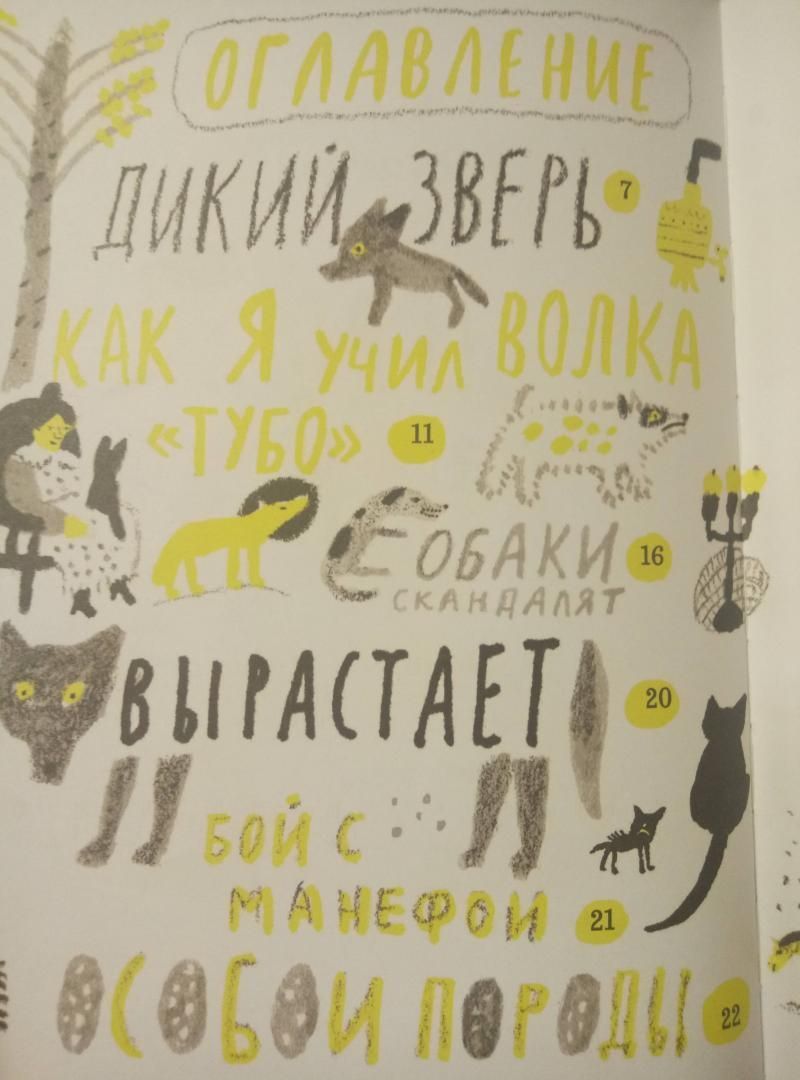 ОГЛАВЛЕНИЕ
ДИКИЙ ЗВЕРЬ 7
КАК Я УЧИЛ ВОЛКА
«ТУБО» 11
СОБАКИ 16
СКАНДАЛЯТ
ВЫРАСТАЕТ 20
БОЙ С
МАНЕФОЙ 21
ОСОБОЙ ПОРОДЫ 22